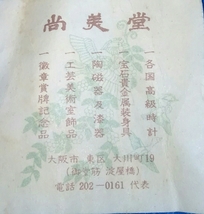 尚美堂
一各国高級時計
一宝石貴金属装身具
一陶磁器及漆器
一工芸美術室飾品
一徽章賞牌記念品
大阪市 東区 大川町19
(御堂筋 淀屋橋)
電話 202-0161 代表